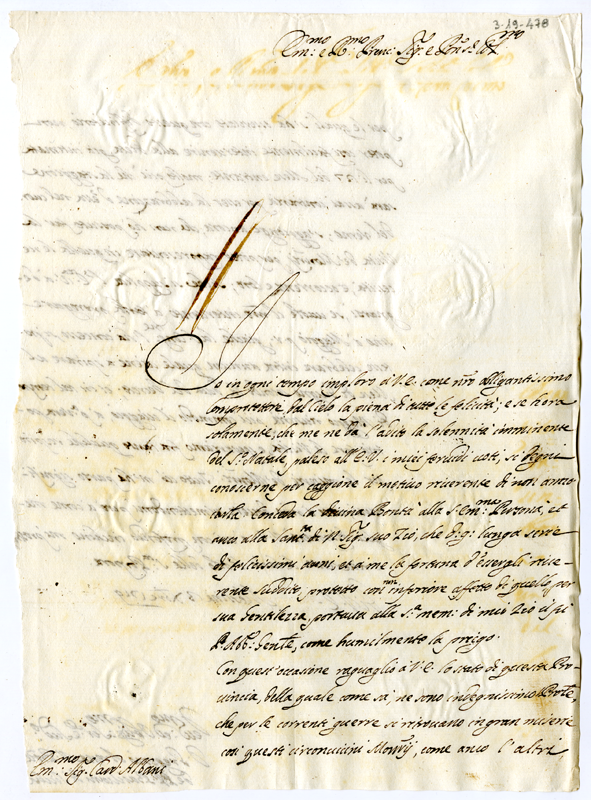 3-19-478
Em:mo e R:mo Prenc: Sig:r e Pne Col:mo
Io in ogni tempo imploro à V.E. come nro allegantissimo
Comprotettore dal Cielo la piena di tutte le felicità; e se hora
solamente, che me ne dà l'adito la solennità imminente
del S:to Natale, paleso all'E.V. i miei fervidi voti, si degni
conoscerne per caggione il motivo riverente di non
la divina Bontà alla S: Em:ma Persona, et
anco alla Sant:tà di N. Sig:re suo Zio, che Dio g: lunga serie
di felicissimi anni, et à me la fortuna d'essergli rive-
rente suddito, protetto con non inferiore affetto di quello per
sua Gentilezza, portava alla S:a mem: di mio Zio il fù
P. Abb: Gentle, come humilmente la priego.
Con quest'occasione raguaglio à V.E. lo stato di questa Pro-
vincia, della quale come sà, ne sono indegnissimo Prole,
che per le correnti guerre si ritrovano in gran miserie
così questi circonvicini Mon:rij, come anco l'altri
Em:mo Sig:r Card: Albani